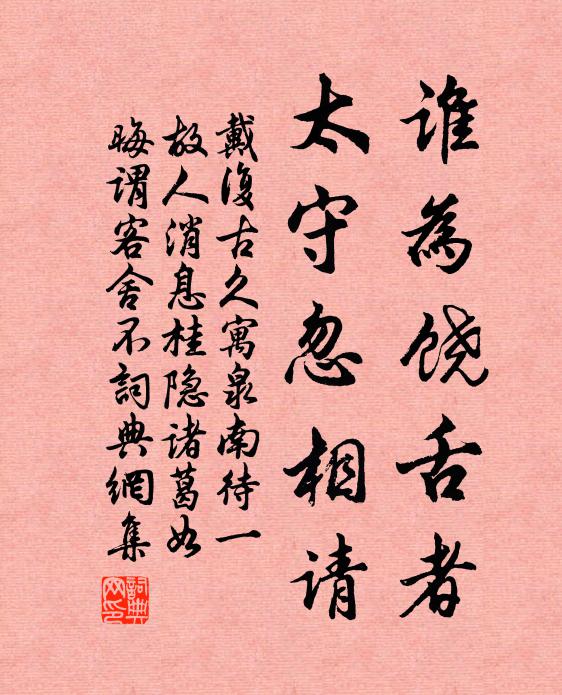 谁為饶舌者
太守忽相请
戴復古久寓泉南待一
故人消息桂隐诸葛如
晦谓客舍不詞典網集
詞典网印